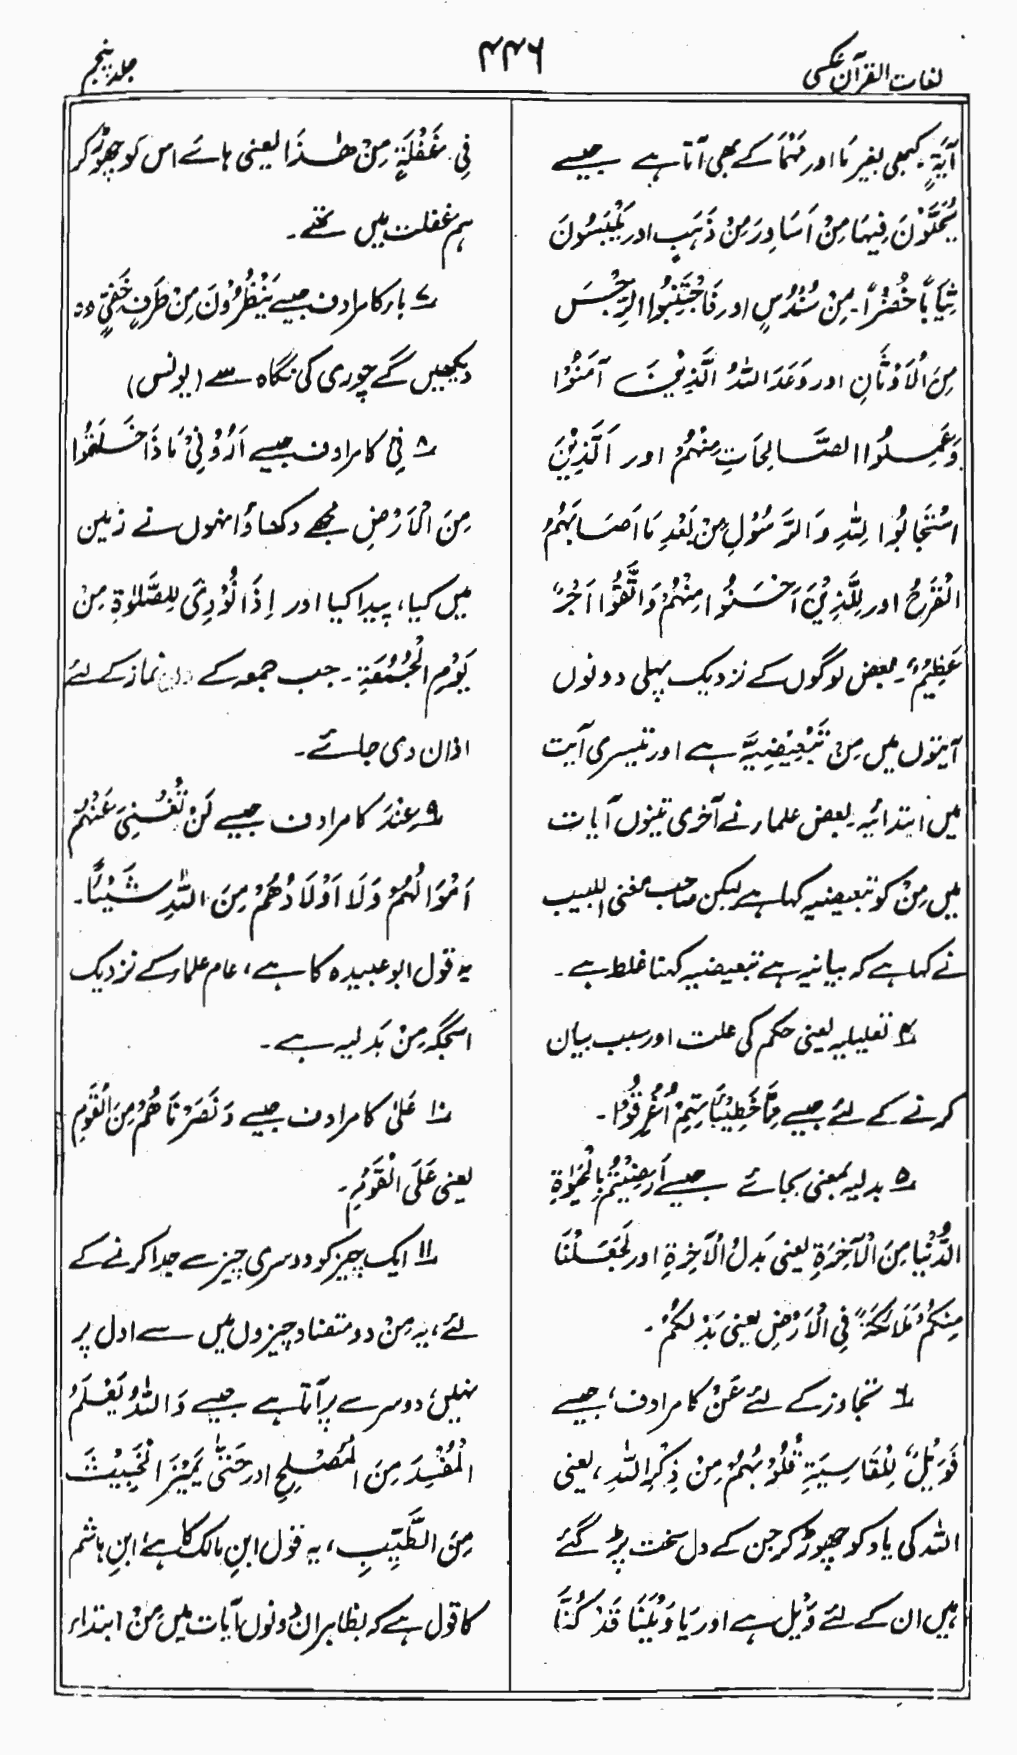 لغات القرآن عکسی
۴۴۶
جلد پنجم
آیَۃٍ۔ کبھی بغیر مَا اور مَہْمَا کے بھی آتا ہے جیسے
یُحَلَّوْنَ فِیہَا مِنْ اَسَاوِرَ مِنْ ذَہَبٍ اور یَلْبَسُوْنَ
ثِیَابًا خُضْرًا۔ مِنْ سُنْدُسٍ اور فَاجْتَنِبُوا الرِّجْسَ
مِنَ الْاَوْثَانِ اور وَعَدَ اللّٰہُ الَّذِیْنَ آمَنُوْا
وَعَمِلُوا الصَّالِحَاتِ مِنْہُمْ اور اَلَّذِیْنَ
اسْتَجَابُوْا لِلّٰہِ وَالرَّسُوْلِ مِنْ بَعْدِ مَا اَصَابَہُمُ
الْقَرْحُ اور لِلَّذِیْنَ اَحْسَنُوْا مِنْہُمْ وَاتَّقَوْا اَجْرٌ
عَظِیْمٌ۔ بعض لوگوں کے نزدیک پہلی دونوں
آیتوں میں مِنْ تَبْعِیْضِیَّہ ہے اور تیسری آیت
میں ابتدائیہ۔ بعض علماء نے آخری تینوں آیات
میں مِنْ کو تبعیضیہ کہا ہے لیکن صاحب مغنی اللبیب
نے کہا ہے کہ بیانیہ ہے تبعیضیہ کہنا غلط ہے۔
۴ تعلیلیہ یعنی حکم کی علت اور سبب بیان
کرنے کے لئے جیسے مِمَّا خَطِیْئَاتِہِمْ اُغْرِقُوْا۔
۵ بدلیہ بمعنی بجائے جیسے اَرَضِیْتُمْ بِالْحَیٰوۃِ
الدُّنْیَا مِنَ الْآخِرَۃِ یعنی بَدَلُ الْآخِرَۃِ اور لَجَعَلْنَا
مِنْکُمْ مَلَائِکَۃً فِی الْاَرْضِ یعنی بَدْلَکُمْ۔
۶ تجاوز کے لئے عَنْ کا مرادف، جیسے
فَوَیْلٌ لِلْقَاسِیَۃِ قُلُوْبُہُمْ مِنْ ذِکْرِ اللّٰہِ، یعنی
اللہ کی یاد کو چھوڑ کر جن کے دل سخت پڑ گئے
ہیں ان کے لئے وَیْل ہے اور یَا وَیْلَنَا قَدْ کُنَّا
فِی غَفْلَۃٍ مِنْ ھٰذَا یعنی ہائے اس کو چھوڑ کر
ہم غفلت میں تھے۔
۷ باء کا مرادف جیسے یَنْظُرُوْنَ مِنْ طَرْفٍ خَفِیٍّ وہ
دیکھیں گے چوری کی نگاہ سے (یونس)
۸ فِی کا مرادف جیسے اَرُوْنِیْ مَاذَا خَلَقُوْا
مِنَ الْاَرْضِ مجھے دکھاؤ انہوں نے زمین
میں کیا، پیدا کیا اور اِذَا نُوْدِیَ لِلصَّلٰوۃِ مِنْ
یَوْمِ الْجُمُعَۃِ۔ جب جمعہ کے دن نماز کے لئے
اذان دی جائے۔
۹ عِنْدَ کا مرادف جیسے لَنْ تُغْنِیَ عَنْہُمْ
اَمْوَالُہُمْ وَلَا اَوْلَادُھُمْ مِنَ اللّٰہِ شَیْئًا۔
یہ قول ابو عبیدہ کا ہے، عام علماء کے نزدیک
اسجگہ مِنْ بَدَلیہ ہے۔
۱۰ عَلیٰ کا مرادف جیسے وَنَصَرْنَا ھُمْ مِنَ الْقَوْمِ
یعنی عَلَی الْقَوْمِ۔
۱۱ ایک چیز کو دوسری چیز سے جدا کرنے کے
لئے، یہ مِنْ دو متضاد چیزوں میں سے اول پر
نہیں، دوسرے پر آتا ہے جیسے وَاللّٰہُ یَعْلَمُ
الْمُفْسِدَ مِنَ الْمُصْلِحِ اور حَتّٰی یَمِیْزَ الْخَبِیْثَ
مِنَ الطَّیِّبِ، یہ قول ابنِ مالک کا ہے، ابنِ ہاشم
کا قول ہے کہ بظاہر ان دونوں آیات میں مِنْ ابتداء